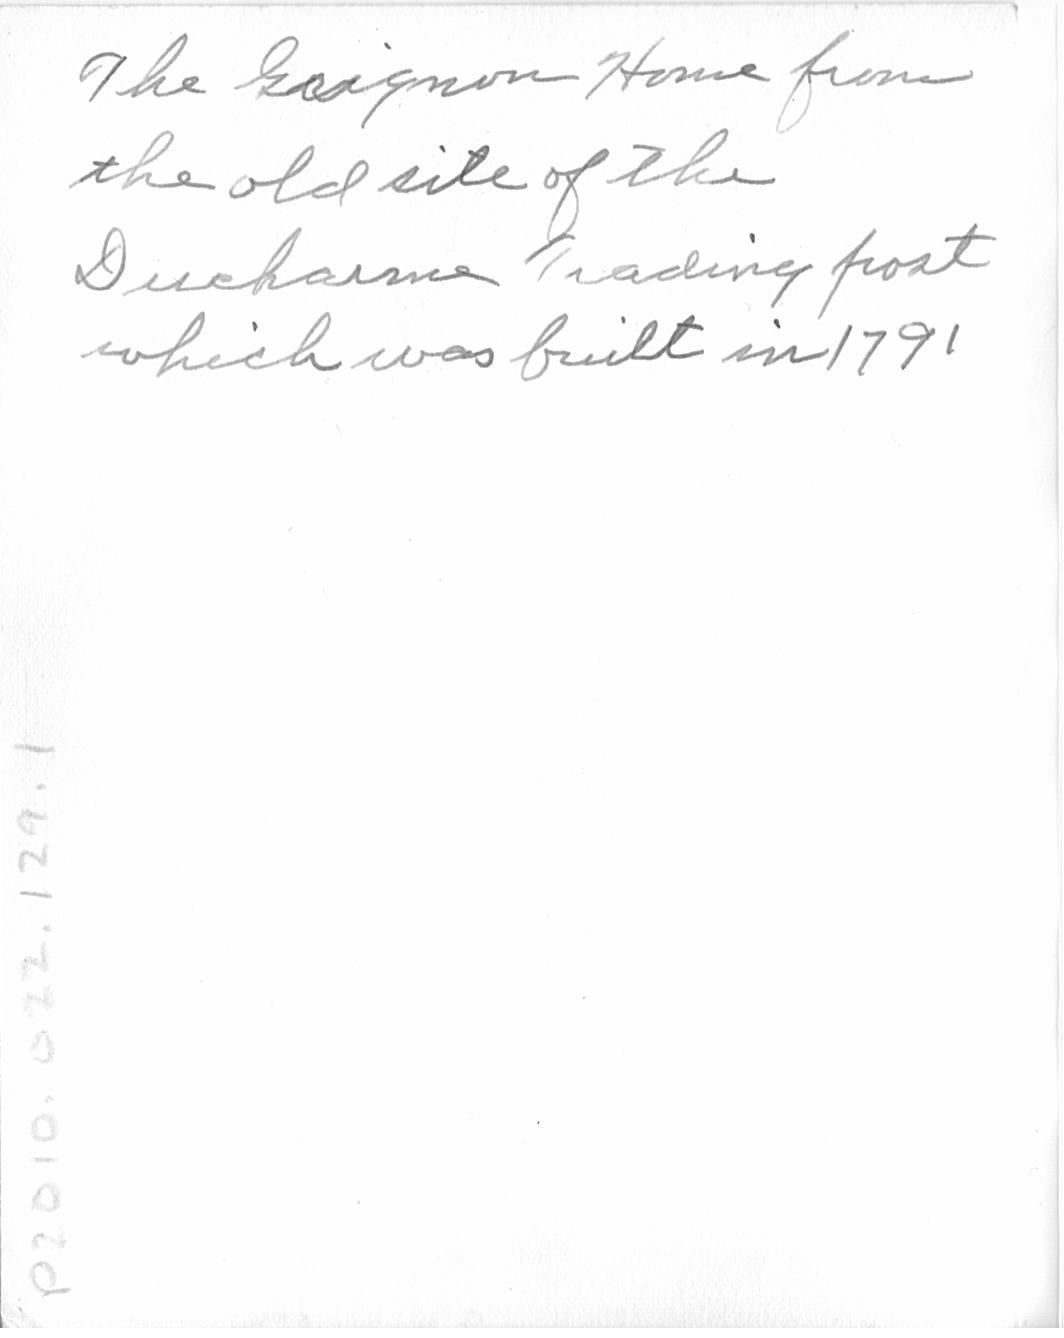 The Grignon Home from
the old site of the
Ducharme Trading post
which was built in 1791
P2010.022.129.1